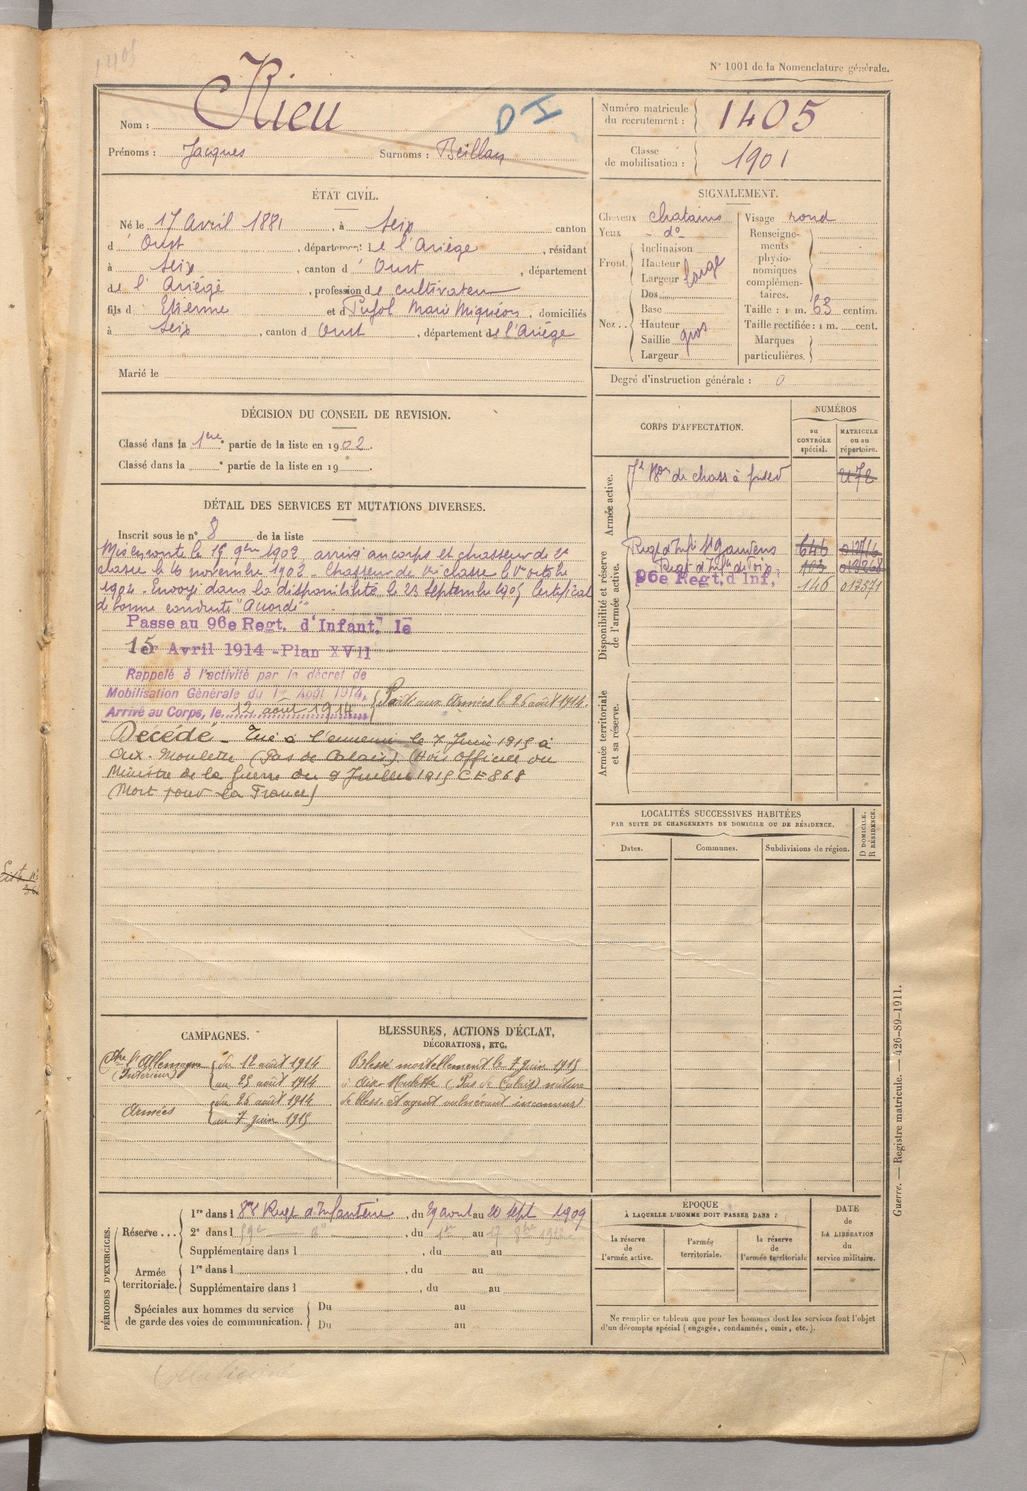 1405
N° 1001 de la Nomenclature générale.
Nom : Rieu
D I
Prénoms : Jacques Surnoms : Beillan
Numéro matricule du recrutement : 1405
Classe de mobilisation : 1901
ÉTAT CIVIL.
Né le 17 Avril 1881, à Seix canton
d'Oust, département de l'Ariège, résidant
à Seix, canton d'Oust, département
de l'Ariège, profession de cultivateur
fils d'Etienne et d Pujol Marie, domiciliés
à Seix, canton d'Oust, département de l'Ariège
Marié le
SIGNALEMENT.
Cheveux chatains
Yeux d°
Front. Inclinaison
Hauteur
Largeur large
Nez.. Dos
Base
Hauteur
Saillie gros
Largeur
Visage rond
Renseignements physionomiques complémentaires.
Taille : 1 m. 63 centim.
Taille rectifiée : 1 m. cent.
Marques particulières.
Degré d'instruction générale : 0
DÉCISION DU CONSEIL DE REVISION.
Classé dans la 1ere partie de la liste en 1902.
Classé dans la partie de la liste en 19
DÉTAIL DES SERVICES ET MUTATIONS DIVERSES.
Inscrit sous le n° 8 de la liste
Mis en route le 15 9bre 1902, arrivé au corps et chasseur de 2e
classe le 16 novembre 1902. Chasseur de 1re classe le 1er octobre
1904. Envoyé dans la disponibilité le 23 septembre 1905 Certificat
de bonne conduite "Accordé"
Passe au 96e Regt. d'Infant. le
1er Avril 1914 - Plan XVII
Rappelé à l'activité par le décret de
Mobilisation Générale du 1er Août 1914.
Arrivé au Corps, le 12 août 1914
Parti aux Armées le 26 août 1914.
Décédé - Tué à l'ennemi le 7 Juin 1915 à
Aix-Noulette (Pas de Calais). (Avis Officiel du
Ministre de la Guerre du 9 Juillet 1915 CE 868
(Mort pour la France)
CORPS D'AFFECTATION.
NUMÉROS
au CONTRÔLE spécial.
MATRICULE ou au répertoire.
Armée active.
7e Bon de chass à pied 2172
Disponibilité et réserve de l'armée active.
Regt d'Infie St Gaudens 646
Regt d'Infie de Foix
96e Regt. d'Inf. 146 012371
Armée territoriale et sa réserve.
LOCALITÉS SUCCESSIVES HABITÉES
PAR SUITE DE CHANGEMENTS DE DOMICILE OU DE RÉSIDENCE.
Dates. Communes. Subdivisions de région. D DOMICILE. R RÉSIDENCE.
CAMPAGNES.
Ctre l'Allemagne (Intérieur) du 12 août 1914
au 25 août 1914
Armées du 26 août 1914
au 7 juin 1915
BLESSURES, ACTIONS D'ÉCLAT,
DÉCORATIONS, ETC.
Blessé mortellement le 7 juin 1915
à Aix-Noulette (Pas de Calais) nature
de bless et agent vulnérant inconnus
PÉRIODES D'EXERCICES.
Réserve... 1re dans l 88e Regt d'Infanterie, du 29 août au 20 Sept 1909
2e dans l 59e d°, du 1er au 17
Supplémentaire dans l , du au
Armée territoriale. 1re dans l , du au
Supplémentaire dans l , du au
Spéciales aux hommes du service de garde des voies de communication. Du au
Du au
ÉPOQUE
À LAQUELLE L'HOMME DOIT PASSER DANS :
la réserve de l'armée active.
l'armée territoriale.
la réserve de l'armée territoriale
DATE de LA LIBÉRATION du service militaire.
Ne remplir ce tableau que pour les hommes dont les services font l'objet
d'un décompte spécial (engagés, condamnés, omis, etc.).
Guerre. — Registre matricule. — 426-89-1911.